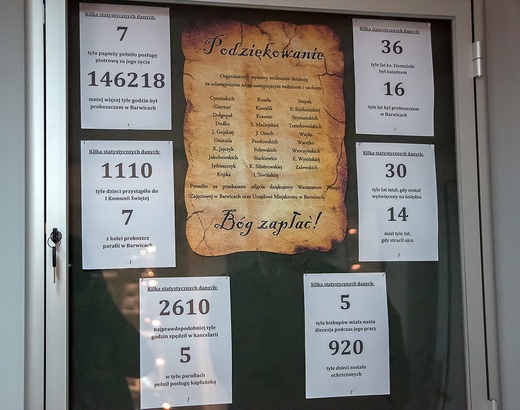 Kilka statystycznych danych:
7
tylu papieży pełniło posługę
piotrową za jego życia
146218
mniej więcej tyle godzin był
proboszczem w Barwicach
Kilka statystycznych danych:
1110
tyle dzieci przystąpiło do
I Komunii Świętej
7
z kolei proboszcz
parafii w Barwicach
Kilka statystycznych danych:
2610
najprawdopodobniej tyle
godzin spędził w kancelarii
5
w tylu parafiach
pełnił posługę kapłańską
Podziękowanie
Organizatorzy wystawy serdecznie dziękują
za udostępnienie zdjęć następującym rodzinom i osobom:
Cywińskich
Czernuć
Dołgopoł
Dudko
J. Gujskiej
Gumiela
K. Jajczyk
Jakubowskich
Jędraszczyk
Kopka
Kozeła
Kowalik
Krawiec
I. Maciejskiej
J. Osuch
Pawłowskich
Polewskich
Siurkiewicz
K. Słiotrowskiej
I. Świsińska
Stupak
B. Suchomskiej
Szymańskich
Trzebowskich
Wajda
Warejko
Wroczyńskich
E. Wysińskiej
Zalewskich
Ponadto za przekazane zdjęcia dziękujemy Warsztatom Terapii
Zajęciowej w Barwicach oraz Urzędowi Miejskiemu w Barwicach.
Bóg zapłać!
Kilka statystycznych danych:
36
tyle lat ks. Ziemnicki
był księdzem
16
tyle lat był proboszczem
w Barwicach
Kilka statystycznych danych:
30
tyle lat miał, gdy został
wyświęcony na księdza
14
miał tyle lat,
gdy stracił ojca
Kilka statystycznych danych:
5
tylu biskupów miała nasza
diecezja podczas jego pracy
920
tyle dzieci zostało
ochrzczonych